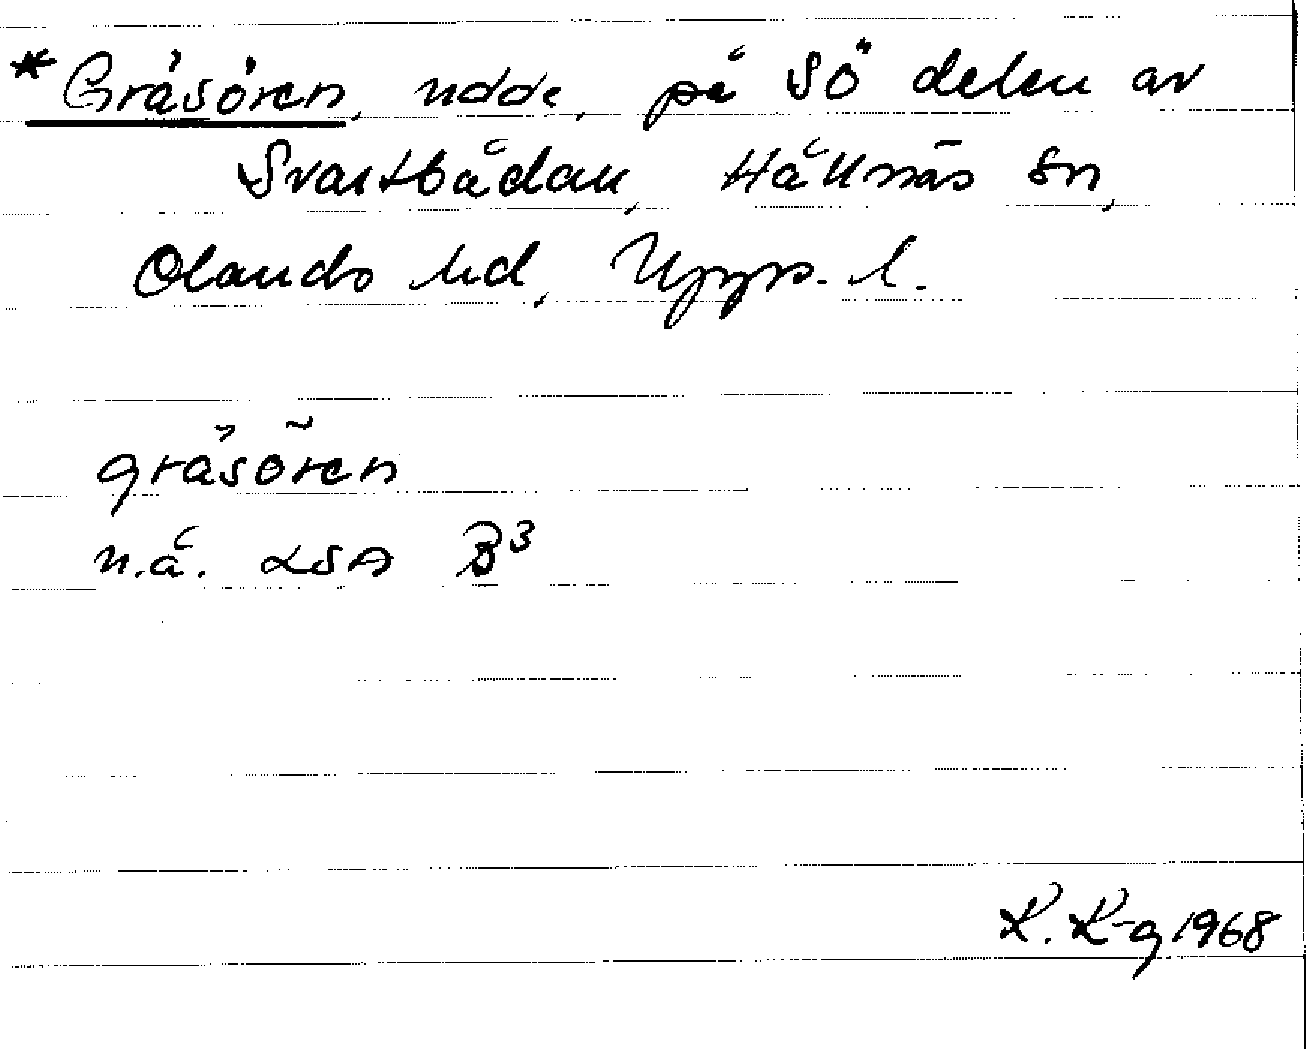 *Gräsören, udde, på SÖ delen av
Svartbådan, Hållnäs sn,
Olands hd, Upps. l.
gräsören
n.å. LSA B³
K. K-g 1968